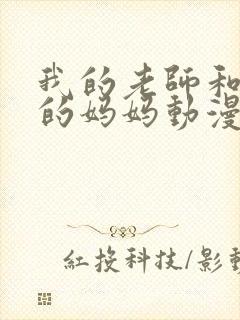 我的老師和
的妈妈動漫
紅投科技/影動